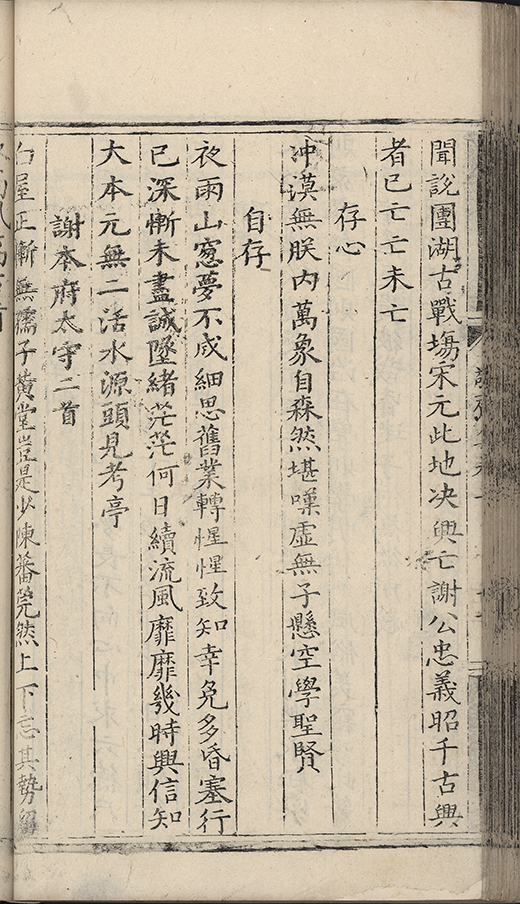 聞說團湖古戰塲宋元此地决興亡謝公忠義昭千古興
者已亡亡未亡
存心
冲漠無朕内萬象自森然堪嘆虚無子懸空學聖賢
自存
夜雨山窻夢不成細思舊業轉惺惺致知幸免多昏塞行
已深慚未盡誠墜緒茫茫何日續流風靡靡幾時興信知
大本元無二活水源頭見考亭
謝本府太守二首
白屋正慚無孺子黄堂豈是少陳蕃䇄然上下忘其勢